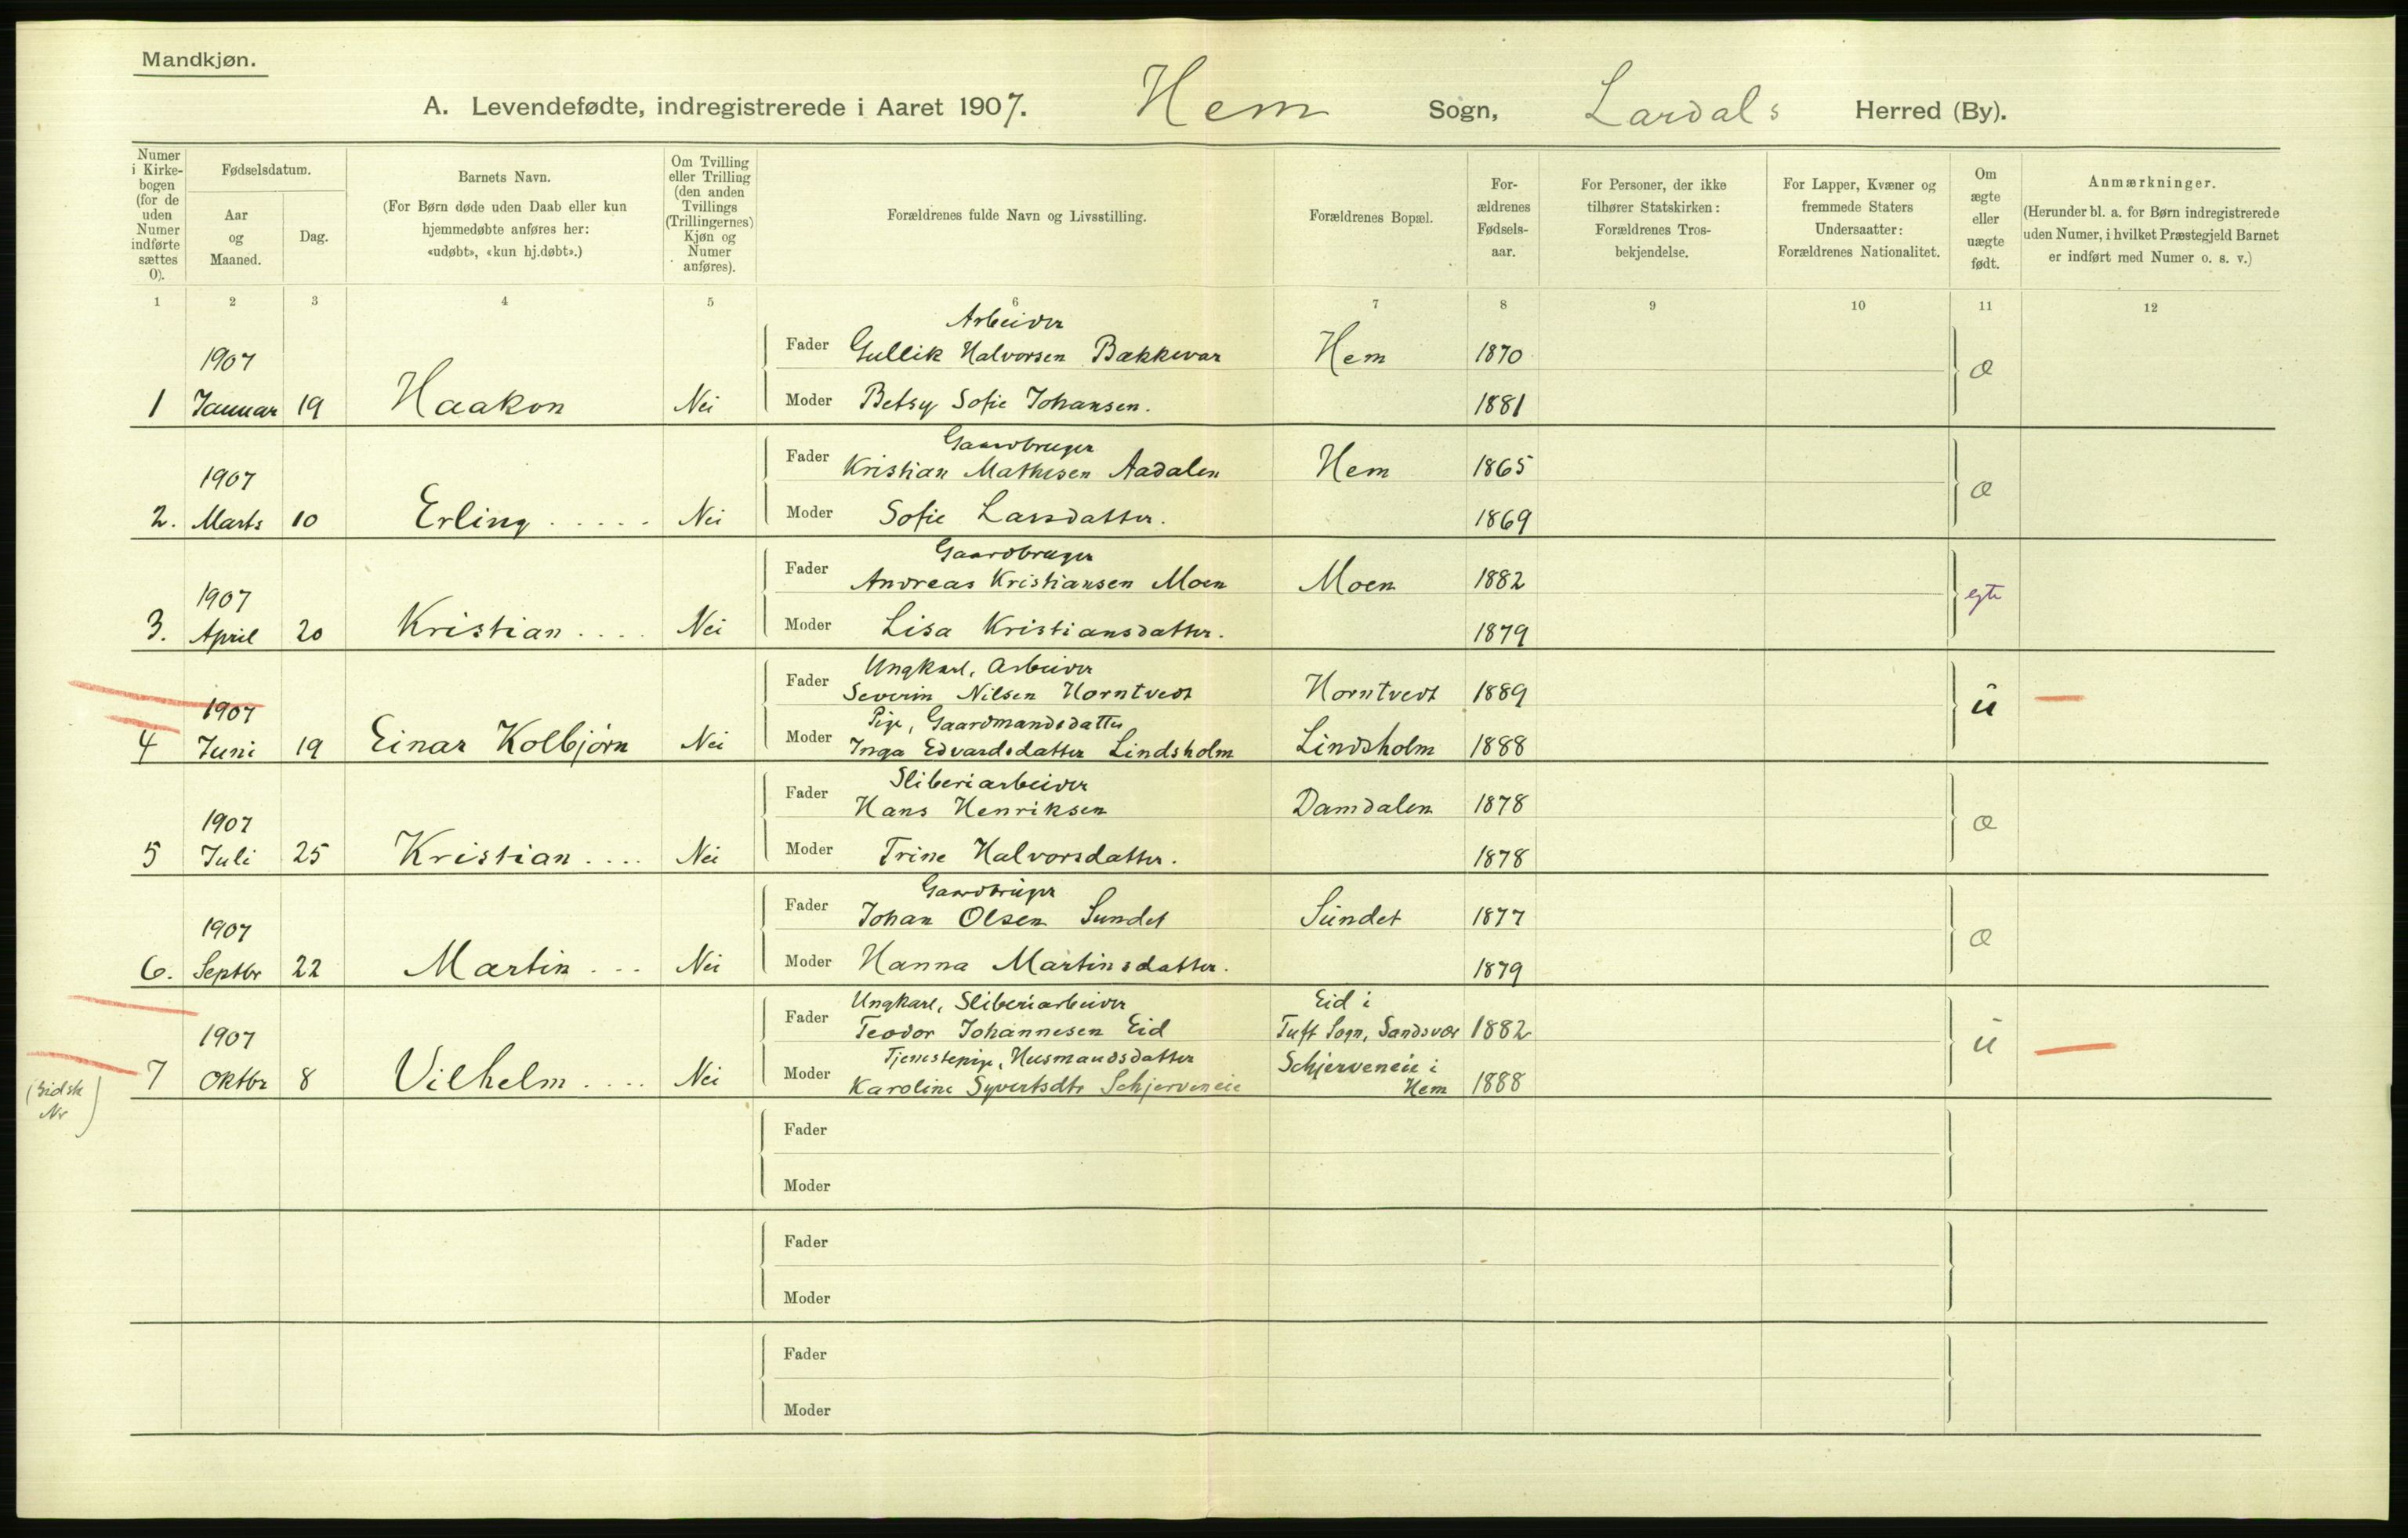 Mandkjøn.
A. Levendefødte, indregistrerede i Aaret 1907. Hem Sogn, Lardals Herred (By).
Numer i Kirke-bogen (for de uden Numer indførte sættes 0).
Fødselsdatum.
Aar og Maaned.
Dag.
Barnets Navn.
(For Børn døde uden Daab eller kun hjemmedøbte anføres her: «udøbt», «kun hj.døbt».)
Om Tvilling eller Trilling (den anden Tvillings (Trillingernes) Kjøn og Numer anføres).
Forældrenes fulde Navn og Livsstilling.
Forældrenes Bopæl.
For-ældrenes Fødsels-aar.
For Personer, der ikke tilhører Statskirken: Forældrenes Tros-bekjendelse.
For Lapper, Kvæner og fremmede Staters Undersaatter: Forældrenes Nationalitet.
Om ægte eller uægte født.
Anmærkninger.
(Herunder bl. a. for Børn indregistrerede uden Numer, i hvilket Præstegjeld Barnet er indført med Numer o. s. v.)
1 2 3 4 5 6 7 8 9 10 11 12
Arbeider
1907 Fader Gullik Halvorsen Bækkevar Hem 1870 æ
1 Januar 19 Haakon Nei Moder Betsy Sofie Johansen. 1881
Gaardbruger
1907 Fader Kristian Mathisen Aadalen Hem 1865 æ
2. Marts 10 Erling ..... Nei Moder Sofie Larsdatter. 1869
Gaardbruger
1907 Fader Andreas Kristiansen Moen Moen 1882 egte
3. April 20 Kristian .... Nei Moder Lisa Kristiansdatter. 1879
Ungkarl, Arbeider
1907 Fader Severin Nilsen Horntvedt Horntvedt 1889 u
Pige, Gaardmandsdatter
4 Juni 19 Einar Kolbjørn Nei Moder Inga Edvardsdatter Lindsholm Lindsholm 1888
Sliberiarbeider
1907 Fader Hans Henriksen Damdalen 1878 æ
5 Juli 25 Kristian .... Nei Moder Trine Halvorsdatter. 1878
Gaardbruger
1907 Fader Johan Olsen Sundet Sundet 1877 æ
6. Septbr 22 Martin ... Nei Moder Hanna Martinsdatter. 1879
Ungkarl, Sliberiarbeider Eid i
1907 Fader Teodor Johannesen Eid Tuft Sogn, Sandsvær 1882 u
Tjenestepige, Husmandsdatter Schjerveneie i
7 Oktbr 8 Vilhelm .... Nei Moder Karoline Syvertsdtr Schjerveneie Hem 1888
(Sidste
Nr)
Fader
Moder
Fader
Moder
Fader
Moder